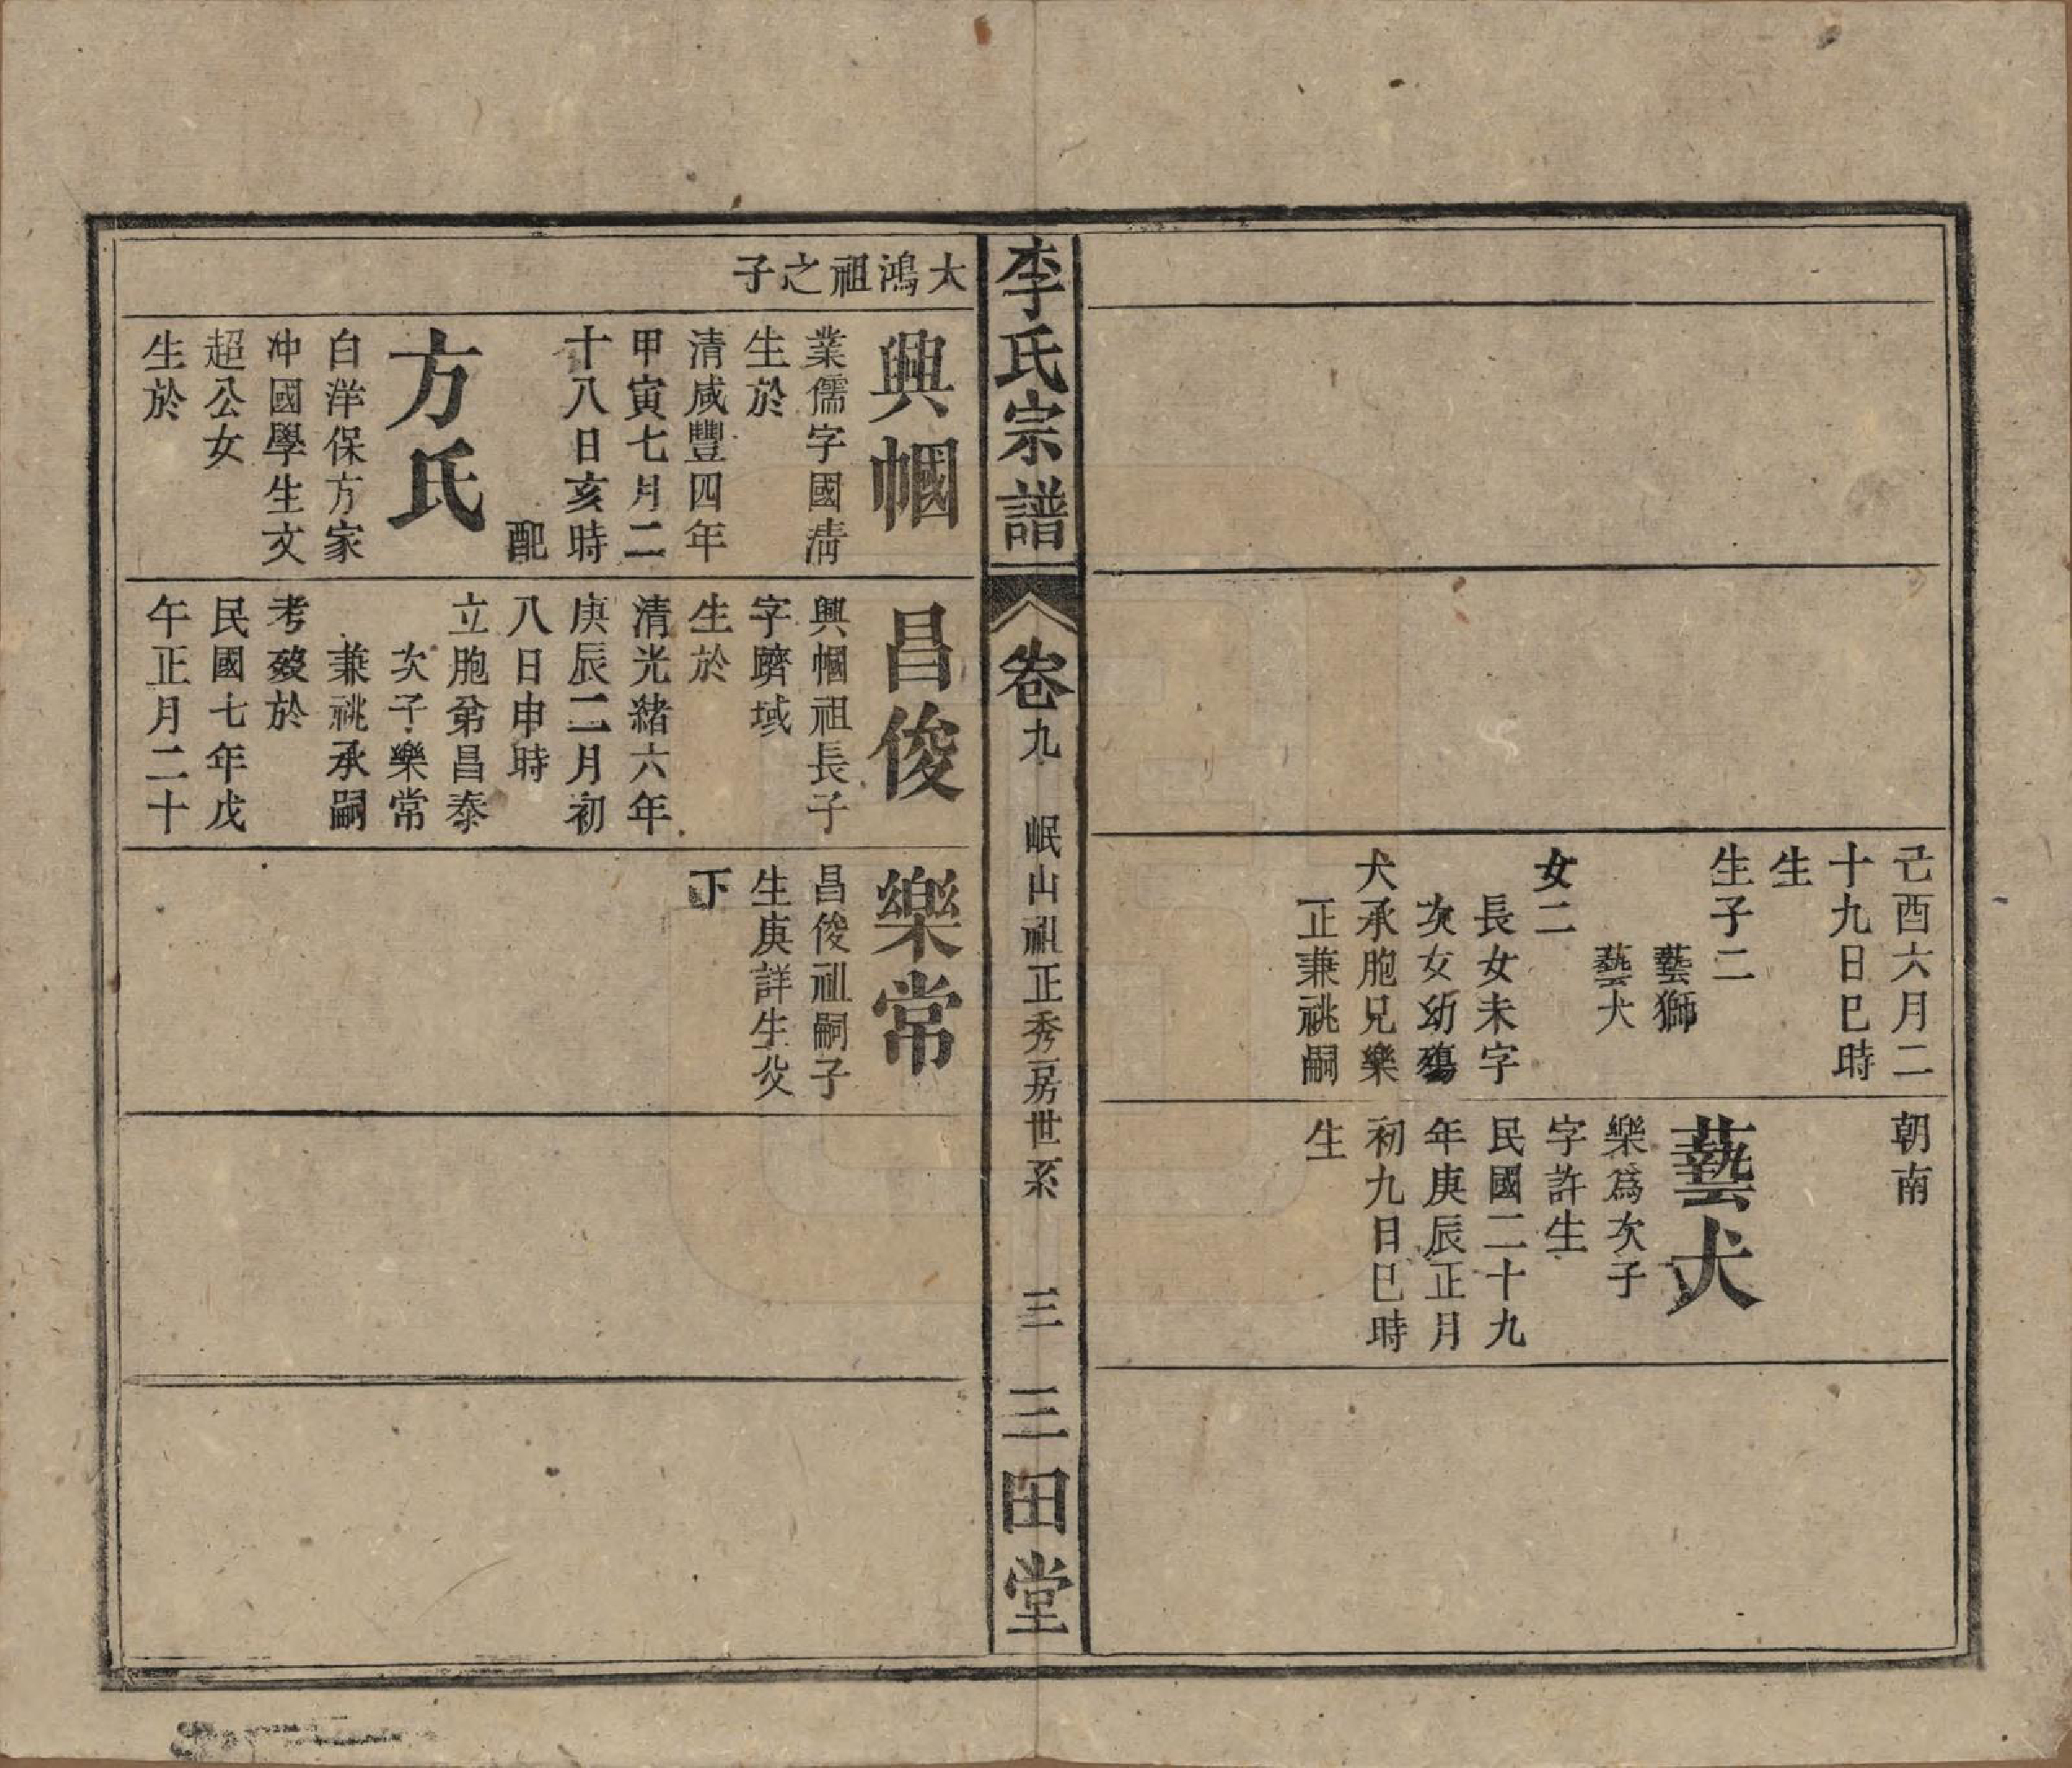 己酉六月二
十九日巳時
生
生子二
藝獅
藝犬
女二
長女未字
次女幼殤
犬承胞兄樂
正兼祧嗣
朝南
藝犬
樂爲次子
字許生
民國二十九
年庚辰正月
初九日巳時
生
李氏宗譜
卷九
岷山祖正秀房世系
三
三田堂
大鴻祖之子
興幗
業儒字國清
生於
清咸豐四年
甲寅七月二
十八日亥時
配
方氏
白洋保方家
冲國學生文
超公女
生於
昌俊
興幗祖長子
字躋域
生於
清光緒六年
庚辰二月初
八日申時
立胞弟昌泰
次子樂常
兼祧承嗣
考歿於
民國七年戊
午正月二十
樂常
昌俊祖嗣子
生庚詳生父
下